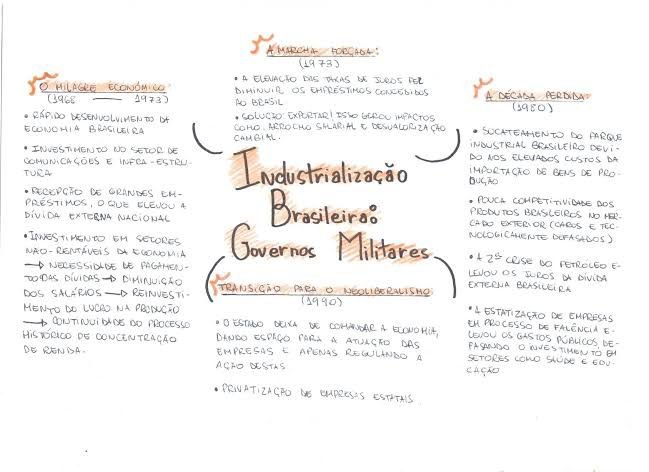 Industrialização
Brasileira:
Governos Militares
O MILAGRE ECONÔMICO:
(1968 — 1973)
• RÁPIDO DESENVOLVIMENTO DA
ECONOMIA BRASILEIRA
• INVESTIMENTO NO SETOR DE
COMUNICAÇÕES E INFRA-ESTRU-
TURA
• RECEPÇÃO DE GRANDES EM-
PRÉSTIMOS, O QUE ELEVOU A
DÍVIDA EXTERNA NACIONAL
• INVESTIMENTO EM SETORES
NÃO-RENTÁVEIS DA ECONOMIA
→ NECESSIDADE DE PAGAMEN-
TO DAS DÍVIDAS → DIMINUIÇÃO
DOS SALÁRIOS → REINVESTI-
MENTO DE LUCRO NA PRODUÇÃO
→ CONTINUIDADE DO PROCESSO
HISTÓRICO DE CONCENTRAÇÃO
DE RENDA.
A MARCHA FORÇADA:
(1973)
• A ELEVAÇÃO DAS TAXAS DE JUROS FEZ
DIMINUIR OS EMPRÉSTIMOS CONCEDIDOS
AO BRASIL
• SOLUÇÃO: EXPORTAR! ISSO GEROU IMPACTOS
COMO: ARROCHO SALARIAL E DESVALORIZAÇÃO
CAMBIAL.
A DÉCADA PERDIDA:
(1980)
• SUCATEAMENTO DO PARQUE
INDUSTRIAL BRASILEIRO DEVI-
DO AOS ELEVADOS CUSTOS DA
IMPORTAÇÃO DE BENS DE PRO-
DUÇÃO
• POUCA COMPETITIVIDADE DOS
PRODUTOS BRASILEIROS NO MER-
CADO EXTERIOR (CAROS E TEC-
NOLOGICAMENTE DEFASADOS).
• A 2ª CRISE DO PETRÓLEO E-
LEVOU OS JUROS DA DÍVIDA
EXTERNA BRASILEIRA
• A ESTATIZAÇÃO DE EMPRESAS
EM PROCESSO DE FALÊNCIA E-
LEVOU OS GASTOS PÚBLICOS, DE-
FASANDO O INVESTIMENTO EM
SETORES COMO SAÚDE E EDU-
CAÇÃO
TRANSIÇÃO PARA O NEOLIBERALISMO
(1990)
• O ESTADO DEIXA DE COMANDAR A ECONOMIA,
DANDO ESPAÇO PARA A ATUAÇÃO DAS
EMPRESAS E APENAS REGULANDO A
AÇÃO DESTAS
• PRIVATIZAÇÃO DE EMPRESAS ESTATAIS